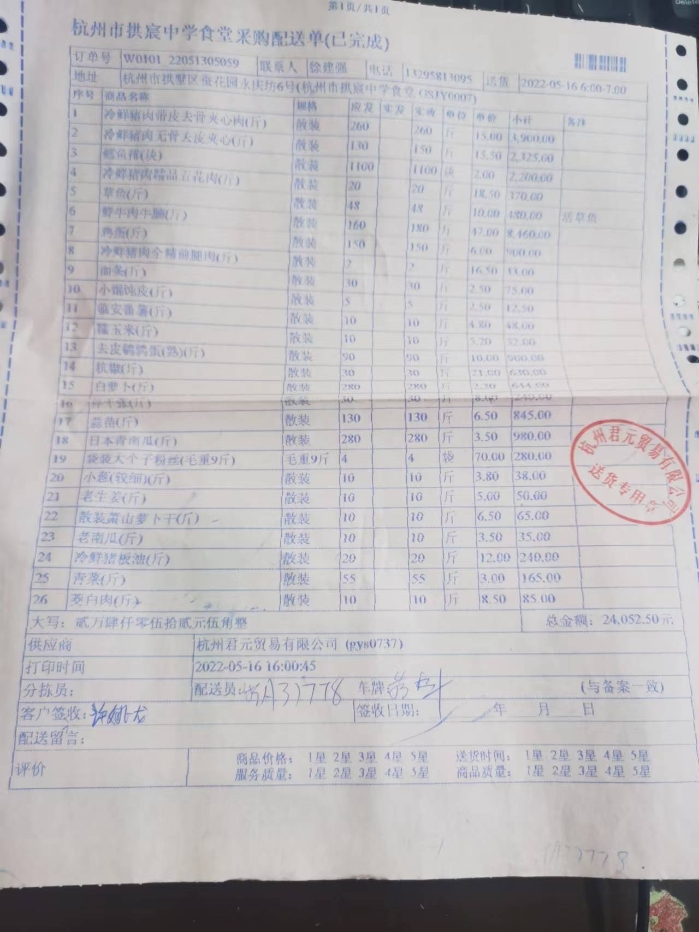 第1页/共1页
杭州市拱宸中学食堂采购配送单(已完成)
订单号 W0101_22051305059 联系人 徐建强 电话 13295813095 送货 2022-05-16 6:00-7:00
地址 杭州市拱墅区蚕花园永庆坊6号(杭州市拱宸中学食堂
序号 商品名称 规格 应发 实发 实收 单位 单价 小计 备注
1 冷鲜猪肉带皮去骨夹心肉(斤) 散装 260 260 斤 15.00 3,900.00
2 冷鲜猪肉无骨去皮夹心(斤) 散装 130 150 斤 15.50 2,325.00
3 散装 1100 1100 2.00 2,200.00
4 冷鲜猪肉精品五花肉(斤) 散装 20 20 斤 18.50 370.00
5 草鱼(斤) 散装 48 48 斤 10.00 480.00 活草鱼
6 鲜牛肉牛腩(斤) 散装 160 180 斤 47.00 8,460.00
7 鸡蛋(斤) 散装 150 150 斤 6.00 900.00
8 冷鲜猪肉全精前腿肉(斤) 散装 2 2 斤 16.50 33.00
9 面条(斤) 散装 30 30 斤 2.50 75.00
10 小馄饨皮(斤) 散装 5 5 斤 2.50 12.50
11 临安番薯(斤) 散装 10 10 斤 4.80 48.00
12 糯玉米(斤) 散装 10 10 斤
13 去皮鹌鹑蛋(熟)(斤) 散装 90 90 斤 10.00 900.00
14 杭椒(斤) 散装 30 30 斤 21.00 630.00
15 白萝卜(斤) 散装 280 280 斤 644.00
16 散装 30 30 斤 8.00 240.00
17 蒜苗(斤) 散装 130 130 斤 6.50 845.00
18 日本青南瓜(斤) 散装 280 280 斤 3.50 980.00
19 袋装大个子粉丝(毛重9斤) 毛重9斤 4 4 袋 70.00 280.00
20 小葱(较细)(斤) 散装 10 10 斤 3.80 38.00
21 老生姜(斤) 散装 10 10 斤 5.00 50.00
22 散装萧山萝卜干(斤) 散装 10 10 斤 6.50 65.00
23 老南瓜(斤) 散装 10 10 斤 3.50 35.00
24 冷鲜猪板油(斤) 散装 20 20 斤 12.00 240.00
25 青菜(斤) 散装 55 55 斤 3.00 165.00
26 茭白肉(斤) 散装 10 10 斤 8.50 85.00
杭州君元贸易有限公司
送货专用章
大写: 贰万肆仟零伍拾贰元伍角整 总金额: 24,052.50元
供应商 杭州君元贸易有限公司 (gys0737)
打印时间 2022-05-16 16:00:45
分拣员: 配送员: 车牌 (与备案一致)
客户签收: 签收日期: 年 月 日
配送留言:
评价 商品价格: 1星 2星 3星 4星 5星 送货时间: 1星 2星 3星 4星 5星
服务质量: 1星 2星 3星 4星 5星 商品质量: 1星 2星 3星 4星 5星